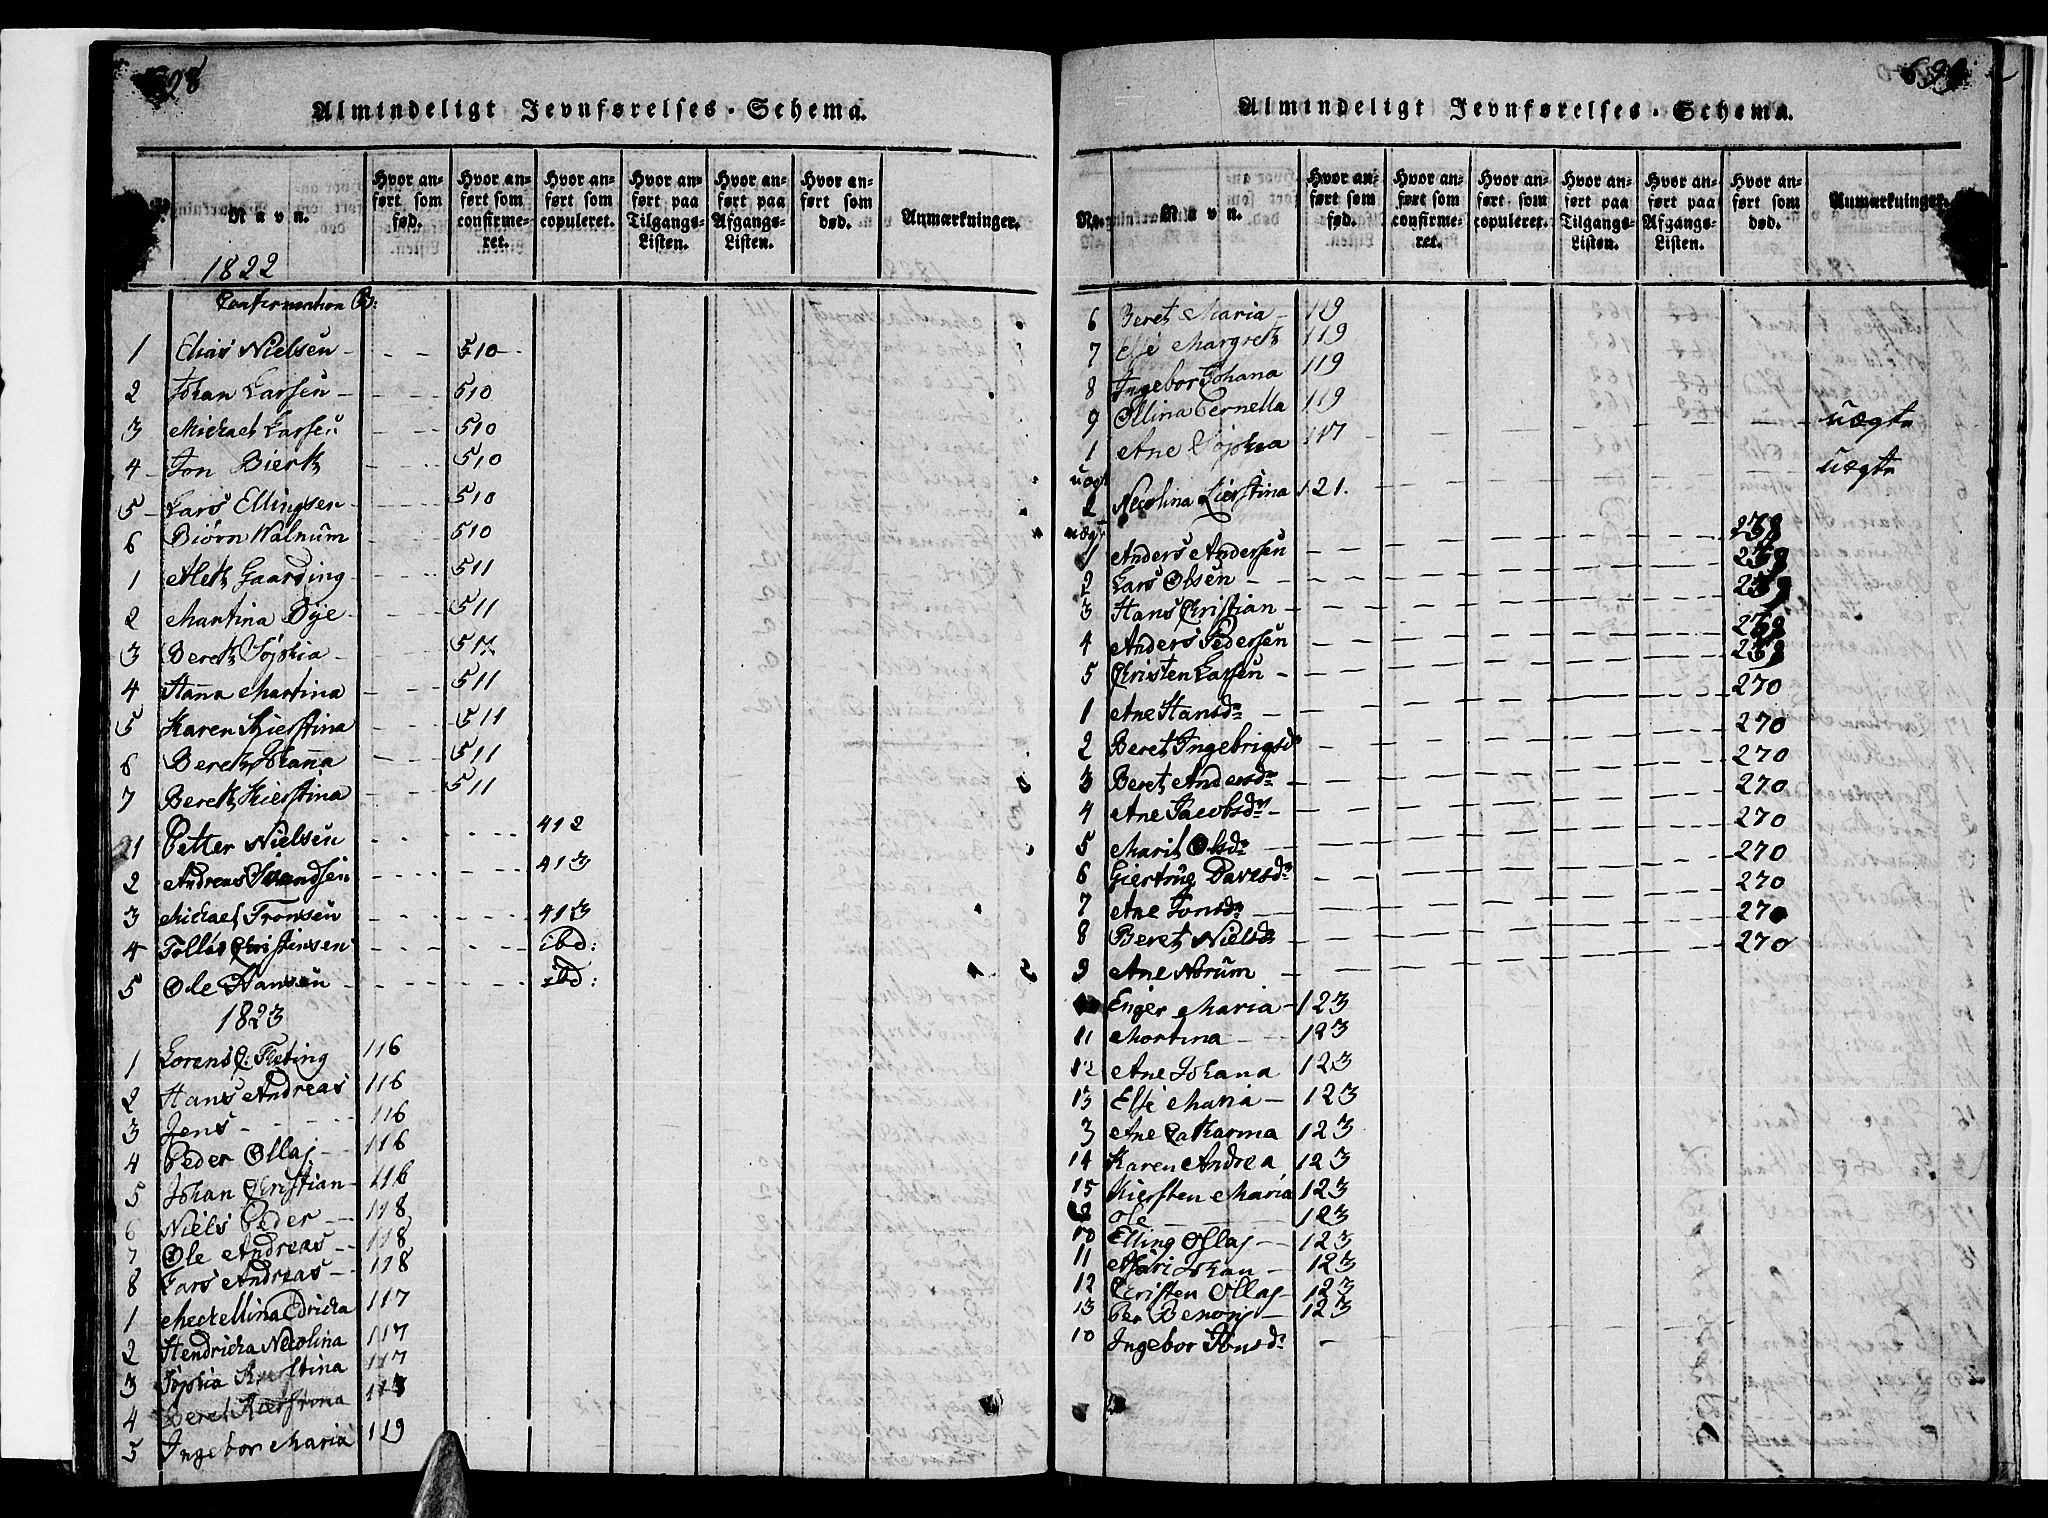 698
Almindeligt Jevnførelses-Schema.
Navn. Hvor anført som fød. Hvor anført som confirmeret. Hvor anført som copuleret. Hvor anført paa Tilgangs-Listen. Hvor anført paa Afgangs-Listen. Hvor anført som død. Anmærkninger.
1822
Confirmention B:
1 Elias Nielsen 510
2 Johan Larsen 510
3 Michael Larsen 510
4 Jon Biertz 510
5 Lars Ellingsen 510
6 Biørn Walnum 510
1 Aletz Gaarding 511
2 Martina Øye 511
3 Beretz Sophia 511
4 Hanna Martina 511
5 Karen Kierstina 511
6 Beretz Johanna 511
7 Beretz Kierstina 511
1 Petter Nielsen 412
2 Andreas Svendsen 413
3 Michael Tronsen 413
4 Tollas Christensen ibd:
5 Ole Hansen ibd:
1823
1 Lorens C: Fleting 116
2 Hans Andreas 116
3 Jens 116
4 Peder Ollaj 116
5 Johan Christian 116
6 Niels Peder 118
7 Ole Andreas 118
8 Lars Andreas 118
1 Meckellina Edricka 117
2 Hendricka Necolina 117
3 Sophia Kierstina 117
4 Beret Kierstina 117
5 Ingebor Maria 119
699
Almindeligt Jevnførelses-Schema.
No. Navn. Hvor anført som fød. Hvor anført som confirmeret. Hvor anført som copuleret. Hvor anført paa Tilgangs-Listen. Hvor anført paa Afgangs-Listen. Hvor anført som død. Anmærkninger.
6 Beret Maria 119
7 Else Margretz 119
8 Ingebor Johana 119
9 Ollina Pernella 119
1 Ane Sophia 117 uægte
uægt
2 Necolina Kierstina 121. uægte
uægt
1 Anders Andersen
2 Lars Olsen
3 Hans Christian
4 Anders Pedersen
5 Christen Larsen
1 Ane Hansdr 270
2 Beret Ingebrigsdr 270
3 Beret Andersdr 270
4 Ane Jacobsdr 270
5 Marit Olsdr 270
6 Giertrue Davisdr 270
7 Ane Jonsdr 270
8 Beret Nielsdr 270
9 Ane Norum 270
Enger Maria 123
11 Mortina 123
12 Ane Johana 123
13 Else Maria 123
3 Ane Catharina 123
14 Karen Andrea 123
15 Kiersten Maria 123
Ole 123
10 Elling Ollaj 123
11 Johan 123
12 Christen Ollaj 123
13 Per Benonj 123
10 Ingebor Jonsdr